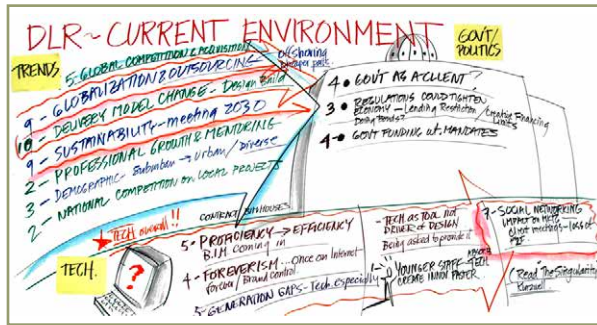 DLR ~ CURRENT ENVIRONMENT
TRENDS
5 - GLOBAL COMPETITION & ACQUISITION
9 - GLOBALIZATION & OUTSOURCING
Offshoring
10 - DELIVERY MODEL CHANGE - Design Build
9 - SUSTAINABILITY - meeting 2030
2 - PROFESSIONAL GROWTH & MENTORING
3 - DEMOGRAPHIC - Suburban → Urban / Diverse
2 - NATIONAL COMPETITION ON LOCAL PROJECTS
CONTRACT
GOVT/
POLITICS
4 • GOVT AS A CLIENT?
3 • REGULATIONS COULD TIGHTEN
ECONOMY - Lending Restriction / Creating Financing
Limits
4 • GOVT FUNDING w/. MANDATES
TECH overall!!
TECH.
?
5 - PROFICIENCY → EFFICIENCY
B.I.M Coming in
4 - FOREVERISM... Once on Internet
forever / Brand control.
5 - GENERATION GAPS - Tech. especially
- TECH AS TOOL not
DRIVER OF DESIGN
Being asked to provide it
YOUNGER STAFF - TECH
CREATE INNOV FASTER
7 - SOCIAL NETWORKING
Impact on
client meetings - loss of
(Read The Singularity